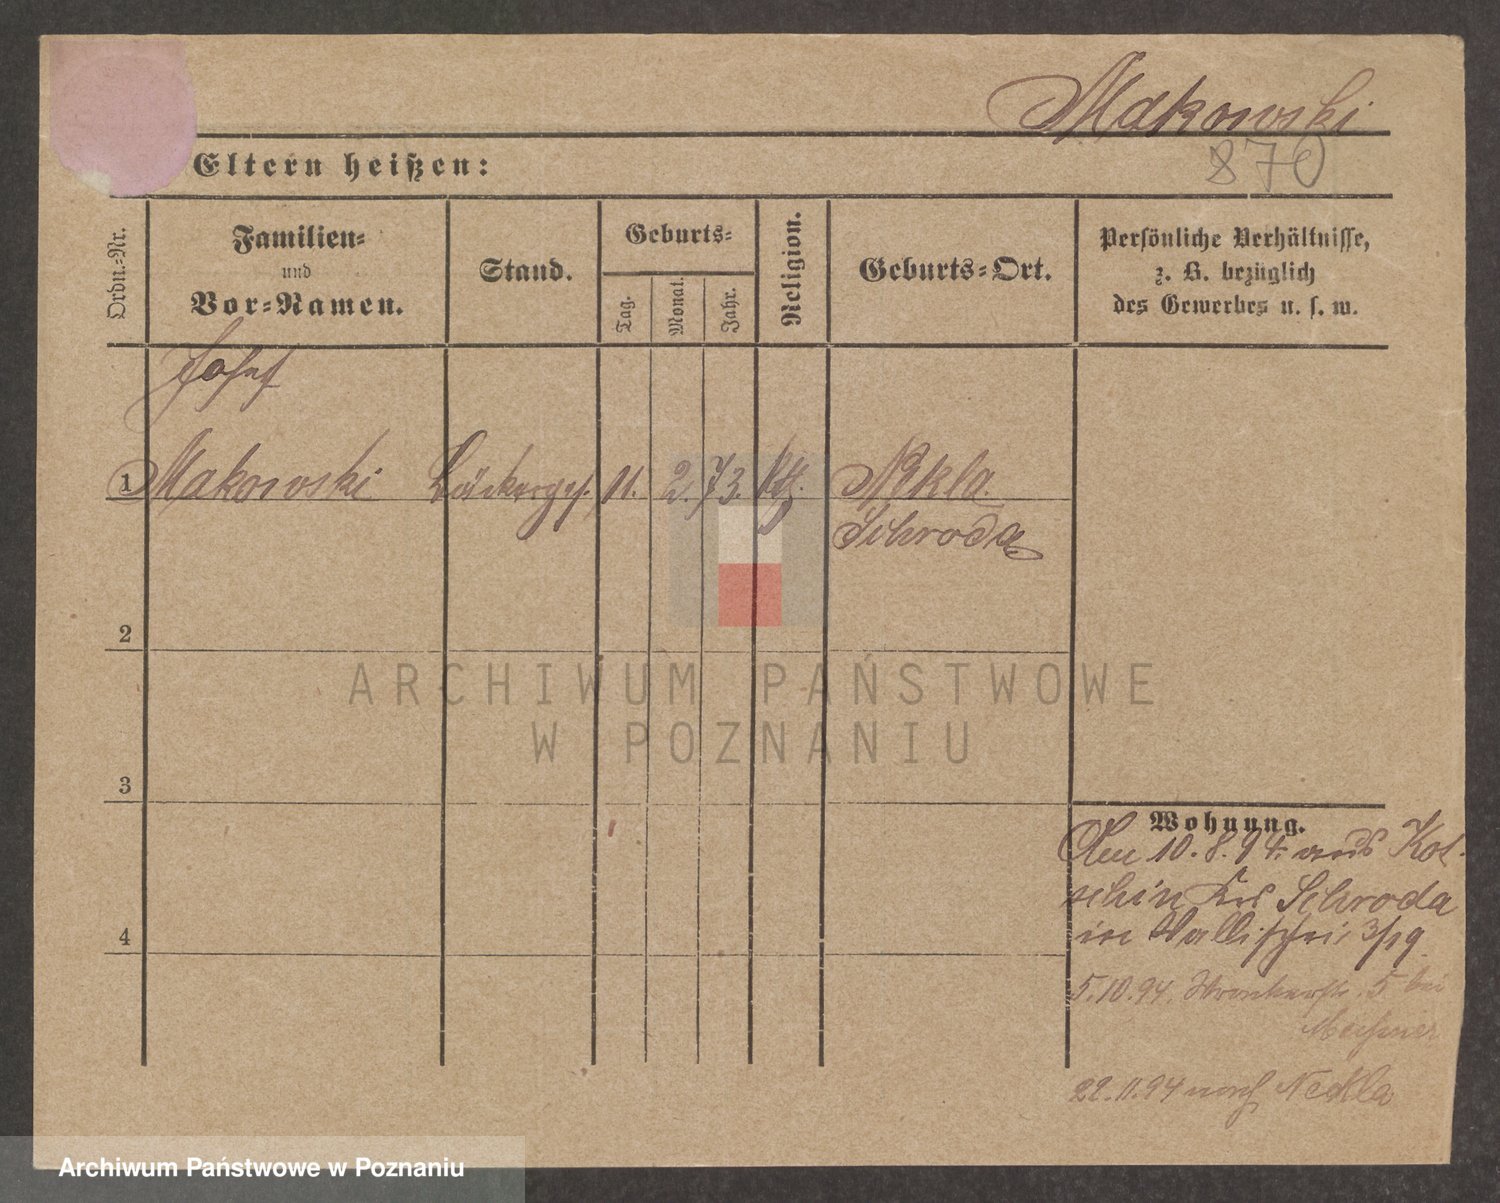 Makowski
870
Eltern heißen:
Ordn.-Nr.
Familien-
und
Vor-Namen.
Stand.
Geburts-
Tag.
Monat.
Jahr.
Religion.
Geburts-Ort.
Persönliche Verhältnisse,
z. B. bezüglich
des Gewerbes u. s. w.
Josef
1 Makowski Bäckerges. 11. 2. 73. kth. Nekla.
Schroda
2
3
4
Wohnung.
Am 10.8.94. aus Kot-
schin Krs Schroda
in Wallischei 3/19
5.10.94. Wronkerstr. 5 bei
22.11.94 nach Neckla
ARCHIWUM PAŃSTWOWE
W POZNANIU
Archiwum Państwowe w Poznaniu